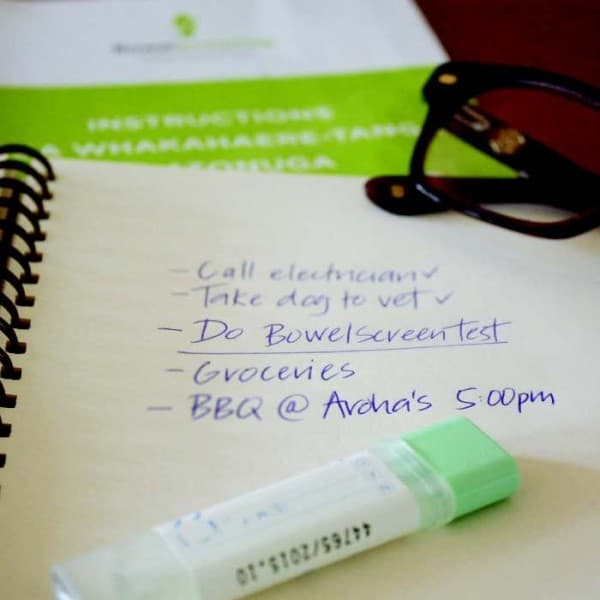 INSTRUCTIONS
WHAKAHAERE
- Call electrician ✓
- Take dog to vet ✓
- Do Bowelscreen test
- Groceries
- BBQ @ Aroha's 5:00pm
44765/2015.10